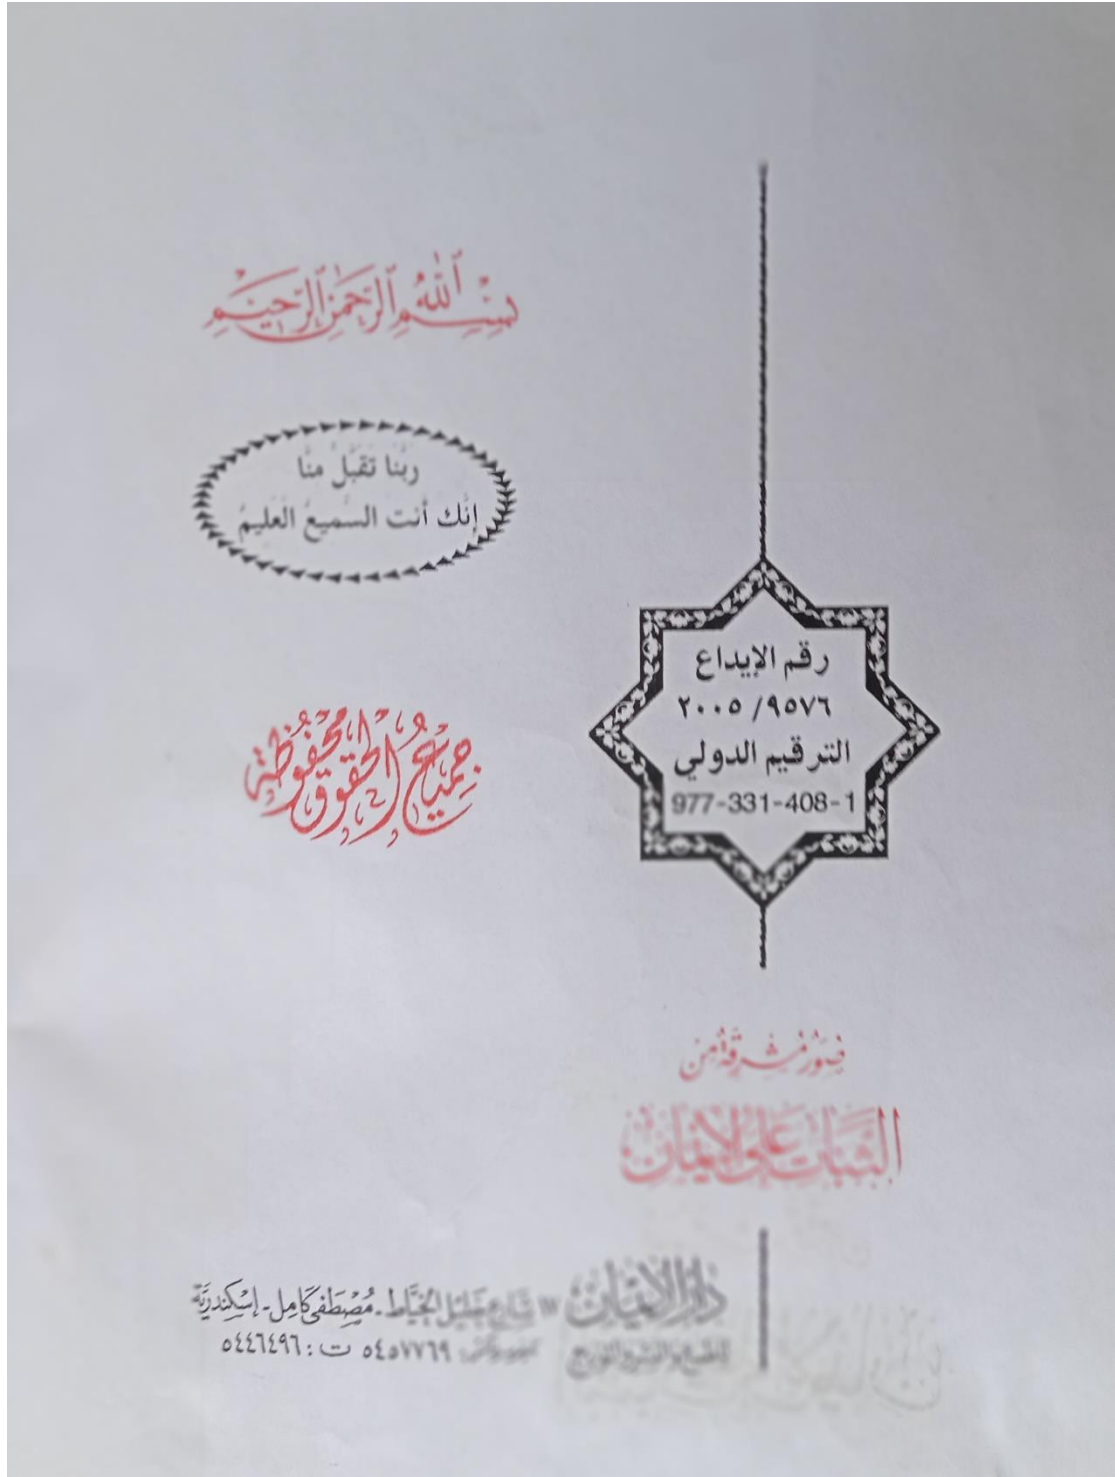 بِسْمِ اللهِ الرَّحْمَنِ الرَّحِيمِ
ربَّنَا تَقَبَّلْ منَّا
إنَّك أنت السَّميعُ الْعَليمُ
جميع الحقوق محفوظة
رقم الإيداع
٢٠٠٥/٩٥٧٦
الترقيم الدولي
977-331-408-1
صور مشرقة من
الثبات على الإيمان
دار الإيمان
للطبع والنشر والتوزيع
١٧ شارع خليل الخياط - مصطفى كامل - إسكندرية
٥٤٥٧٧٦٩ ت : ٥٤٤٦٤٩٦